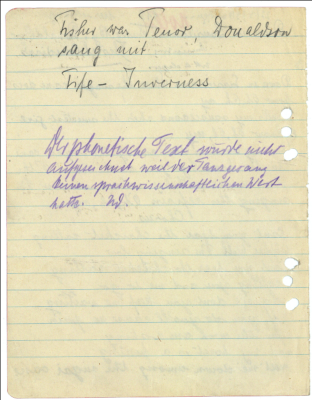 Fisher war Tenor, Donaldson
sang mit
Fife – Inverness
Der phonetische Text wurde nicht
aufgezeichnet weil der Tanzgesang
keinen sprachwissenschaftlichen Wert
hatte.